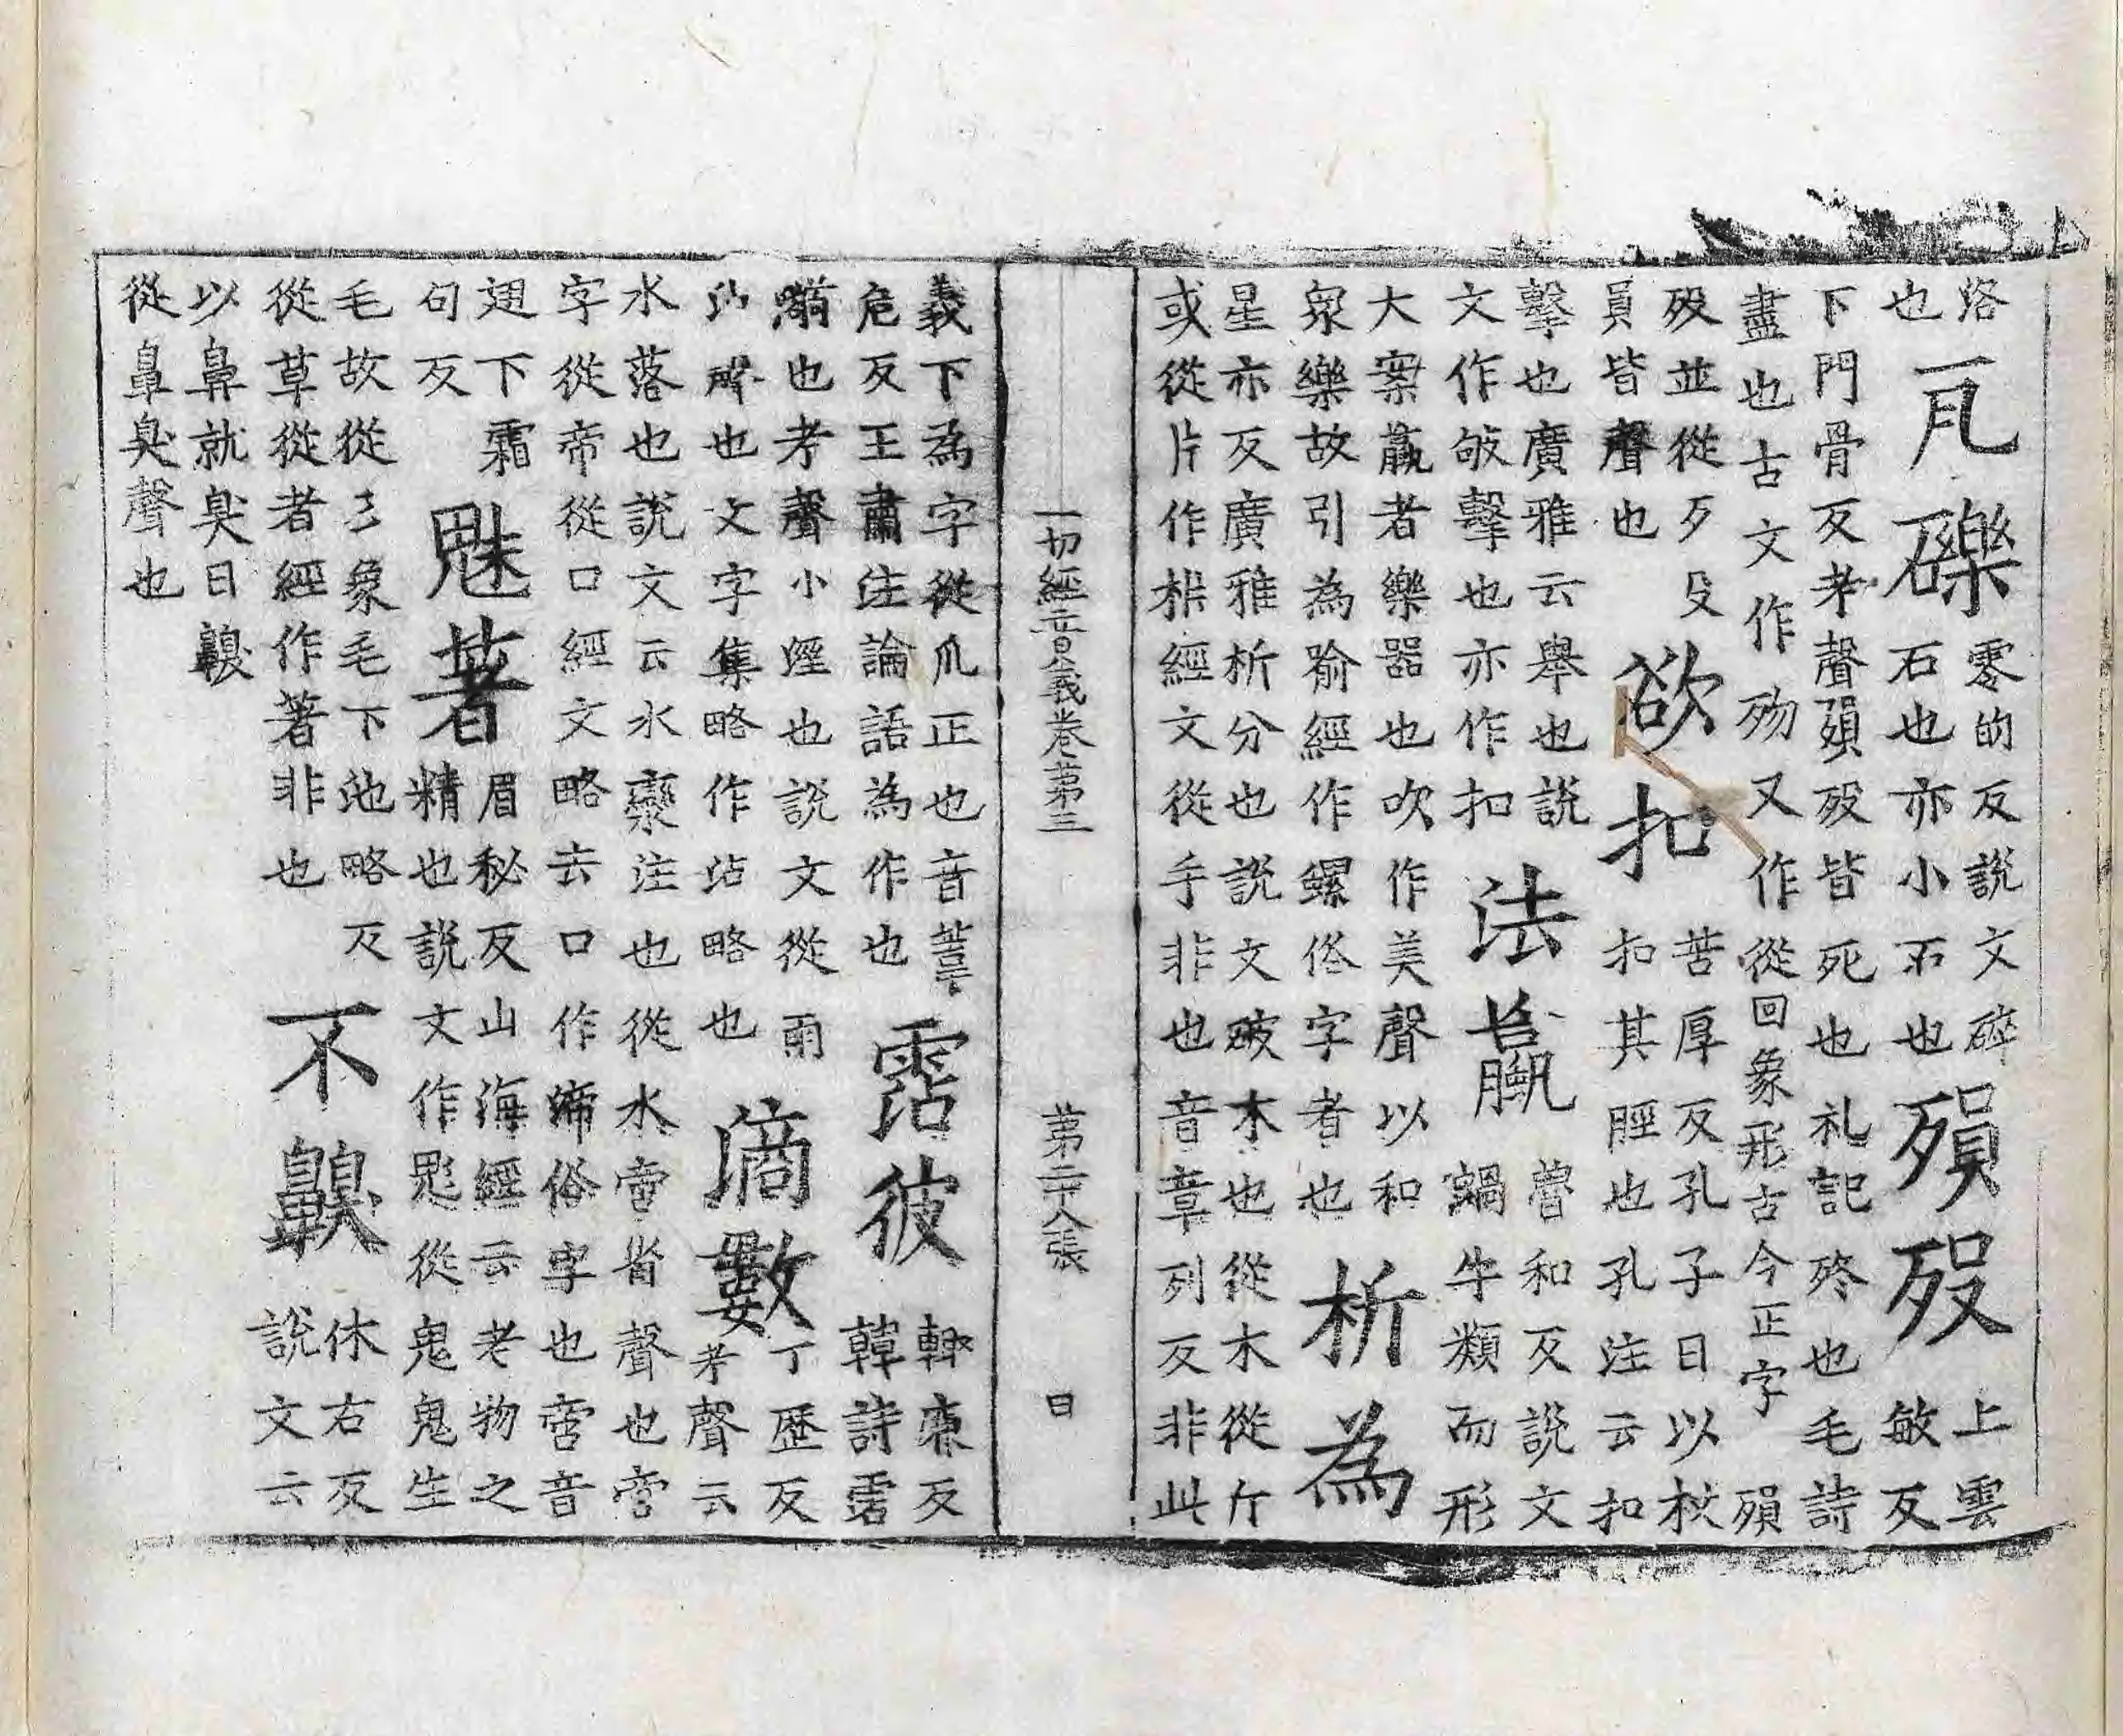 烙
也
瓦礫
零的反説文碎
石也亦小石也
殞歿
上雲
敏反
下門骨反考聲殞歿皆死也礼記終也毛詩
盡也古文作歾又作從回象形古今正字殞
歿並從歹殳
員皆聲也
欲扣
苦厚反孔子曰以杖
扣其脛也孔注云扣
擊也廣雅云舉也説
文作敂擊也亦作扣
法蠃
魯和反説文
蝸牛類而形
大案蠃者樂器也吹作美聲以和
衆樂故引為喻經作螺俗字者也
析為
星亦反廣雅析分也説文破木也從木從斤
或從片作㸞經文從手非也音章列反非此
一切經音義卷第三 第二十八張 日
義下為字從爪正也音葦
危反王肅注論語為作也
霑彼
輒廉反
韓詩霑
溺也考聲小溼也説文從雨
沾聲也文字集略作沾略也
滴數
丁歷反
考聲云
水落也説文云水灓注也從水啻省聲也啻
字從帝從口經文略去口作渧俗字也啻音
翅下霜
句反
魅著
眉秘反山海經云老物之
精也説文作鬽從鬼鬼生
毛故從彡象毛下池略反
從草從者經作著非也
不齅
休右反
説文云
以鼻就臭曰齅
從鼻臭聲也